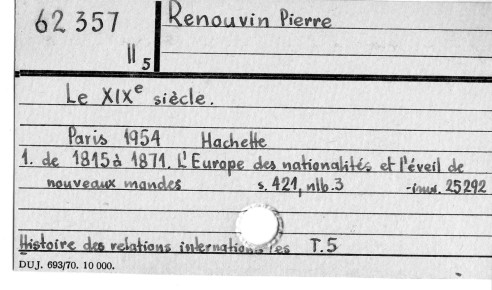 62 357
II 5
Renouvin Pierre
Le XIXe siècle.
Paris 1954 Hachette
1. de 1815 à 1871. L'Europe des nationalités et l'éveil de
nouveaux mondes s. 421, nlb. 3 -inw. 25292
Histoire des relations internationales T. 5
DUJ. 693/70. 10 000.